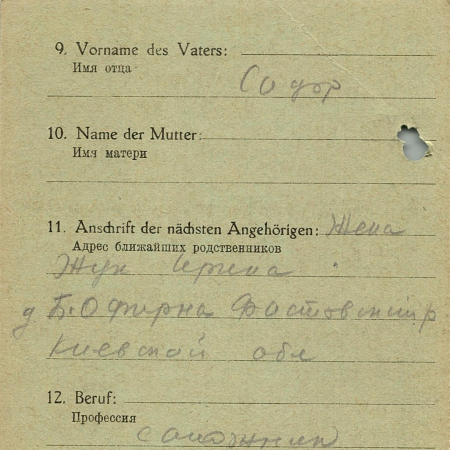 9. Vorname des Vaters:
Имя отца
Содор
10. Name der Mutter:
Имя матери
11. Anschrift der nächsten Angehörigen: Жена
Адрес ближайших родственников
Жук Ирина
д Б. Офирна Фастовский р
Киевской обл
12. Beruf:
Профессия